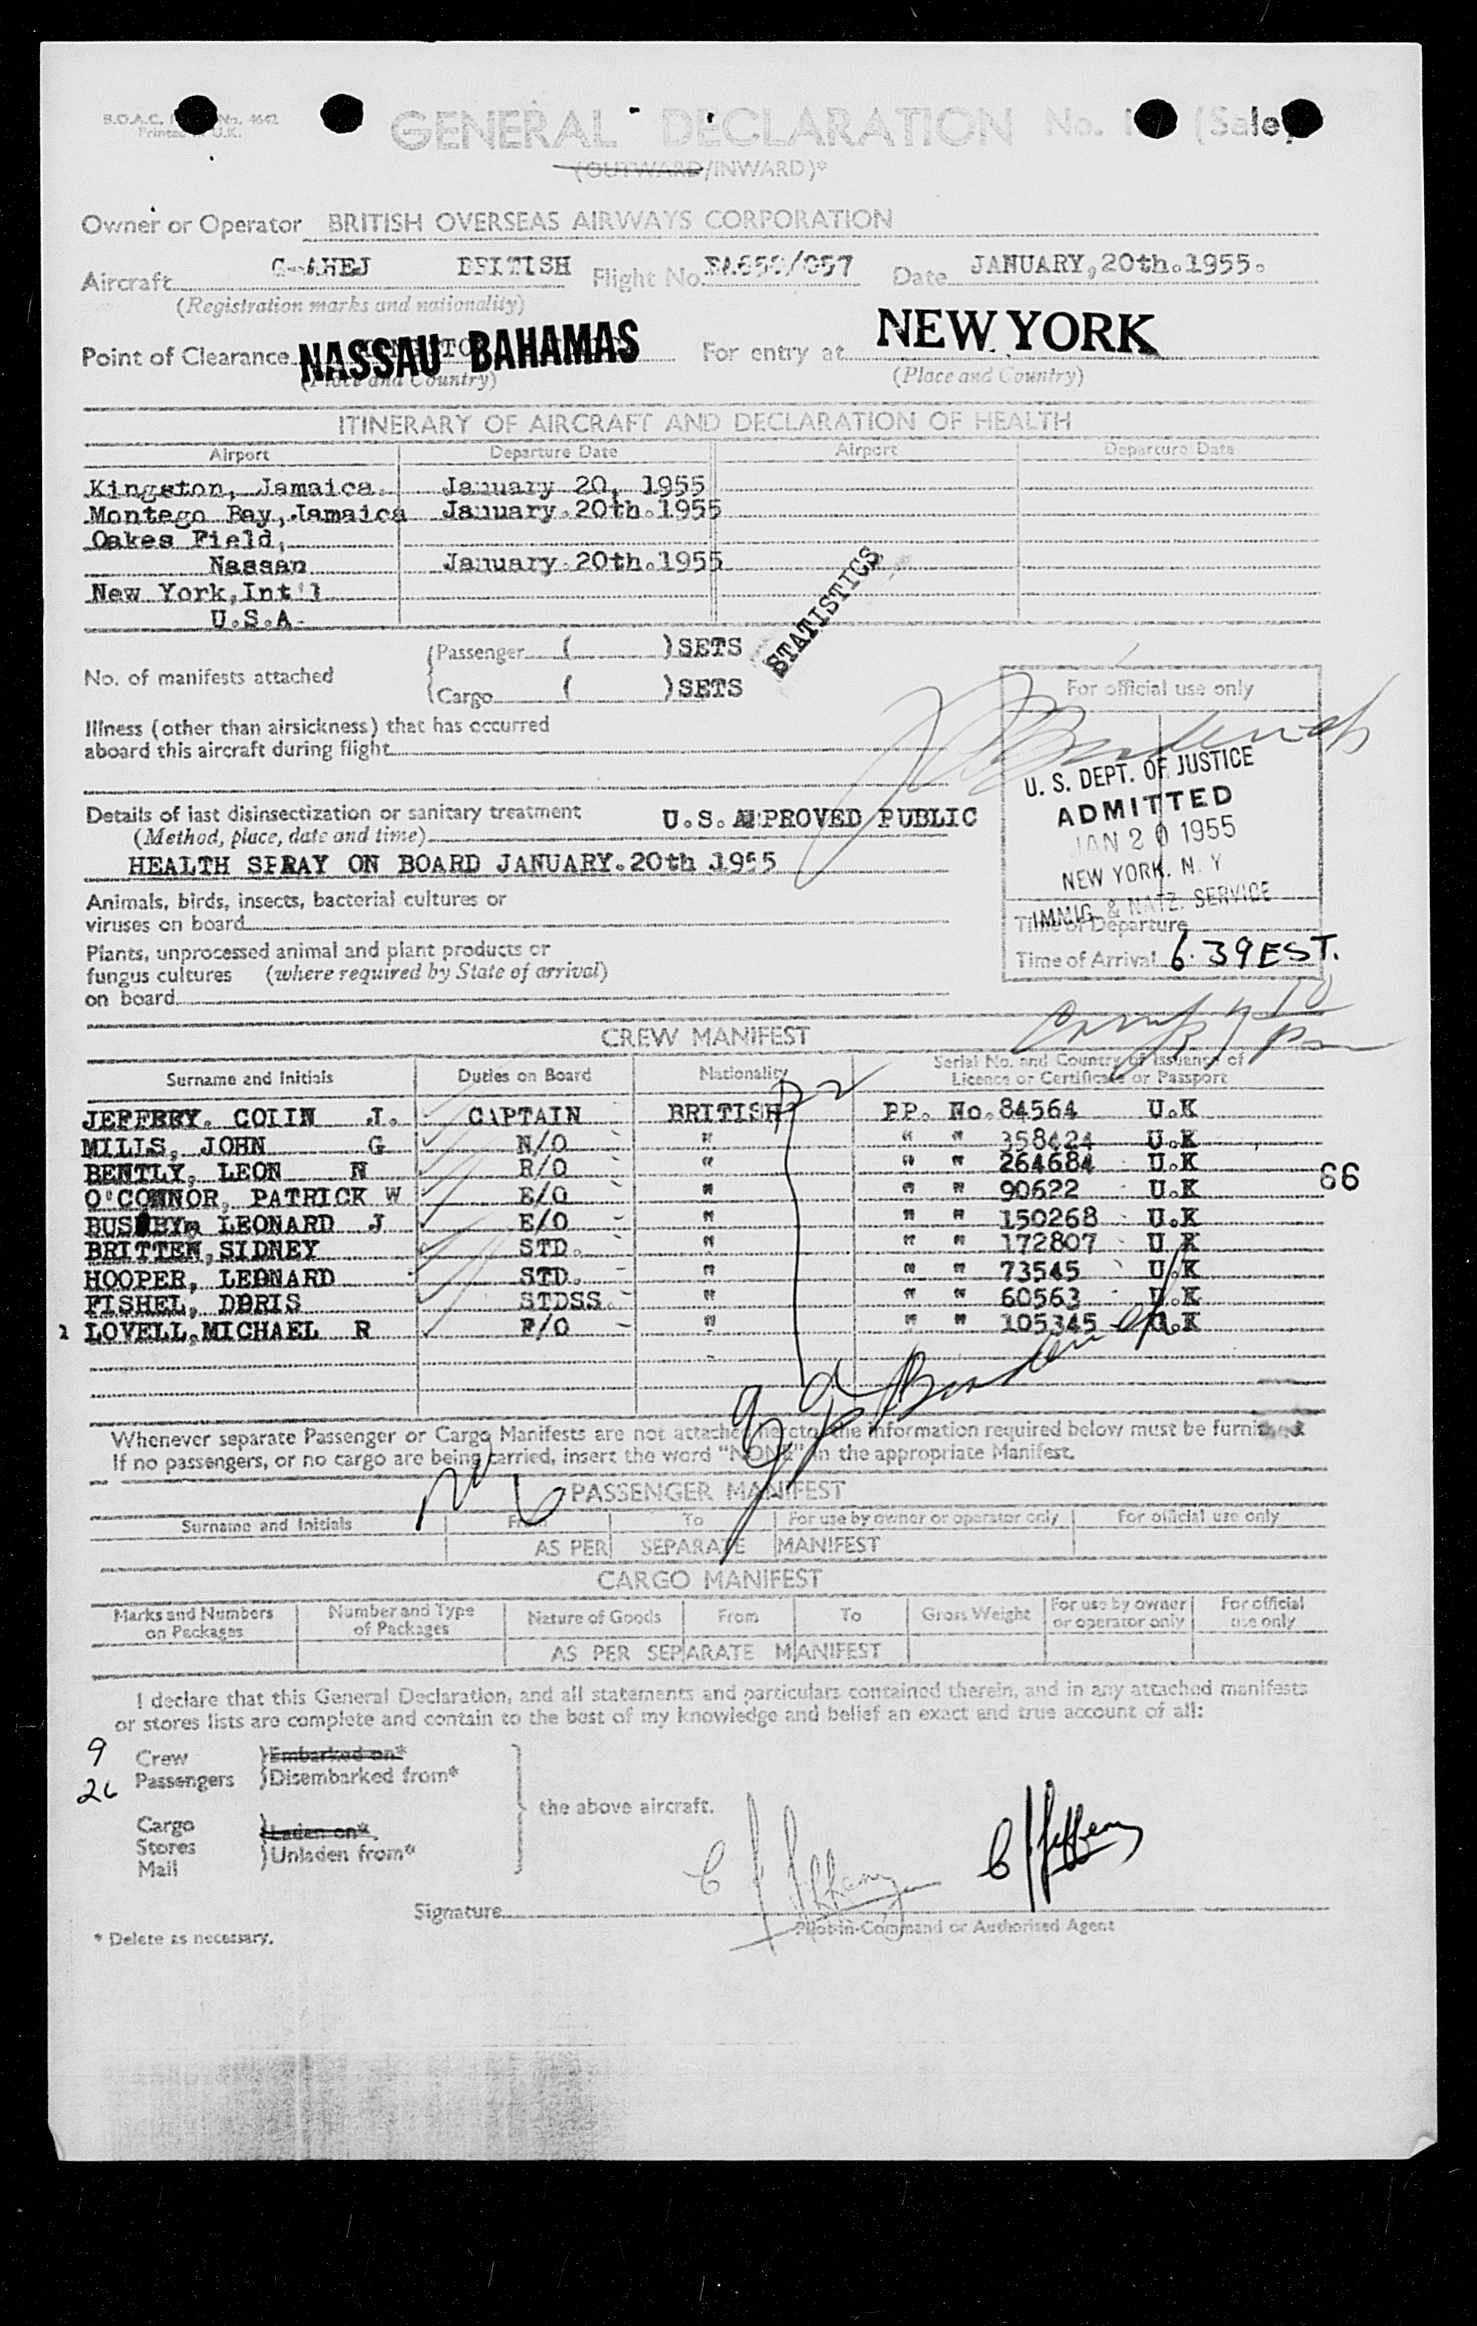 B.O.A.C. No. 4642
Printed U.K.
GENERAL DECLARATION No. (Sale)
(OUTWARD/INWARD)*
Owner or Operator BRITISH OVERSEAS AIRWAYS CORPORATION
Aircraft G-AHEJ BRITISH Flight No. BA650/057 Date JANUARY,20th.1955.
(Registration marks and nationality)
Point of Clearance NASSAU BAHAMAS For entry at NEW YORK
(Place and Country) (Place and Country)
ITINERARY OF AIRCRAFT AND DECLARATION OF HEALTH
Airport Departure Date Airport Departure Date
Kingston, Jamaica. January 20, 1955
Montego Bay, Jamaica January.20th.1955
Oakes Field,
Nassau January.20th.1955
New York,Int'l
U.S.A.
STATISTICS
No. of manifests attached
Passenger ( )SETS
Cargo ( )SETS
For official use only
Illness (other than airsickness) that has occurred
aboard this aircraft during flight
U. S. DEPT. OF JUSTICE
ADMITTED
JAN 20 1955
NEW YORK. N. Y
IMMIG. & NATZ. SERVICE
Details of last disinsectization or sanitary treatment U.S. APPROVED PUBLIC
(Method, place, date and time)
HEALTH SPRAY ON BOARD JANUARY.20th 1955
Animals, birds, insects, bacterial cultures or
viruses on board
Time of Departure
Plants, unprocessed animal and plant products or
fungus cultures (where required by State of arrival)
on board
Time of Arrival 6.39 EST.
CREW MANIFEST
Surname and Initials Duties on Board Nationality Serial No. and Country of Issuance of
Licence or Certificate or Passport
JEFFREY. COLIN J. CAPTAIN BRITISH P.P. No. 84564 U.K
MILLS, JOHN G N/O " " " 358424 U.K
BENTLY, LEON N R/O " " " 264684 U.K
O'CONNOR, PATRICK W E/O " " " 90622 U.K
66
BUSHBY, LEONARD J E/O " " " 150268 U.K
BRITTEN,SIDNEY STD. " " " 172807 U K
HOOPER, LEONARD STD. " " " 73545 U.K
FISHEL, DORIS STDSS. " " " 60563 U.K
1 LOVELL,MICHAEL R F/O " " " 105345 U.K
Whenever separate Passenger or Cargo Manifests are not attached hereto, the information required below must be furnished
If no passengers, or no cargo are being carried, insert the word "NONE" in the appropriate Manifest.
PASSENGER MANIFEST
Surname and Initials From To For use by owner or operator only For official use only
AS PER SEPARATE MANIFEST
CARGO MANIFEST
Marks and Numbers on Packages Number and Type of Packages Nature of Goods From To Gross Weight For use by owner or operator only For official use only
AS PER SEPARATE MANIFEST
I declare that this General Declaration, and all statements and particulars contained therein, and in any attached manifests
or stores lists are complete and contain to the best of my knowledge and belief an exact and true account of all:
9 Crew Embarked on*
26 Passengers Disembarked from*
the above aircraft.
Cargo
Stores Laden on*
Mail Unladen from*
C J Jeffrey C J Jeffrey
Signature
Pilot-in-Command or Authorised Agent
* Delete as necessary.